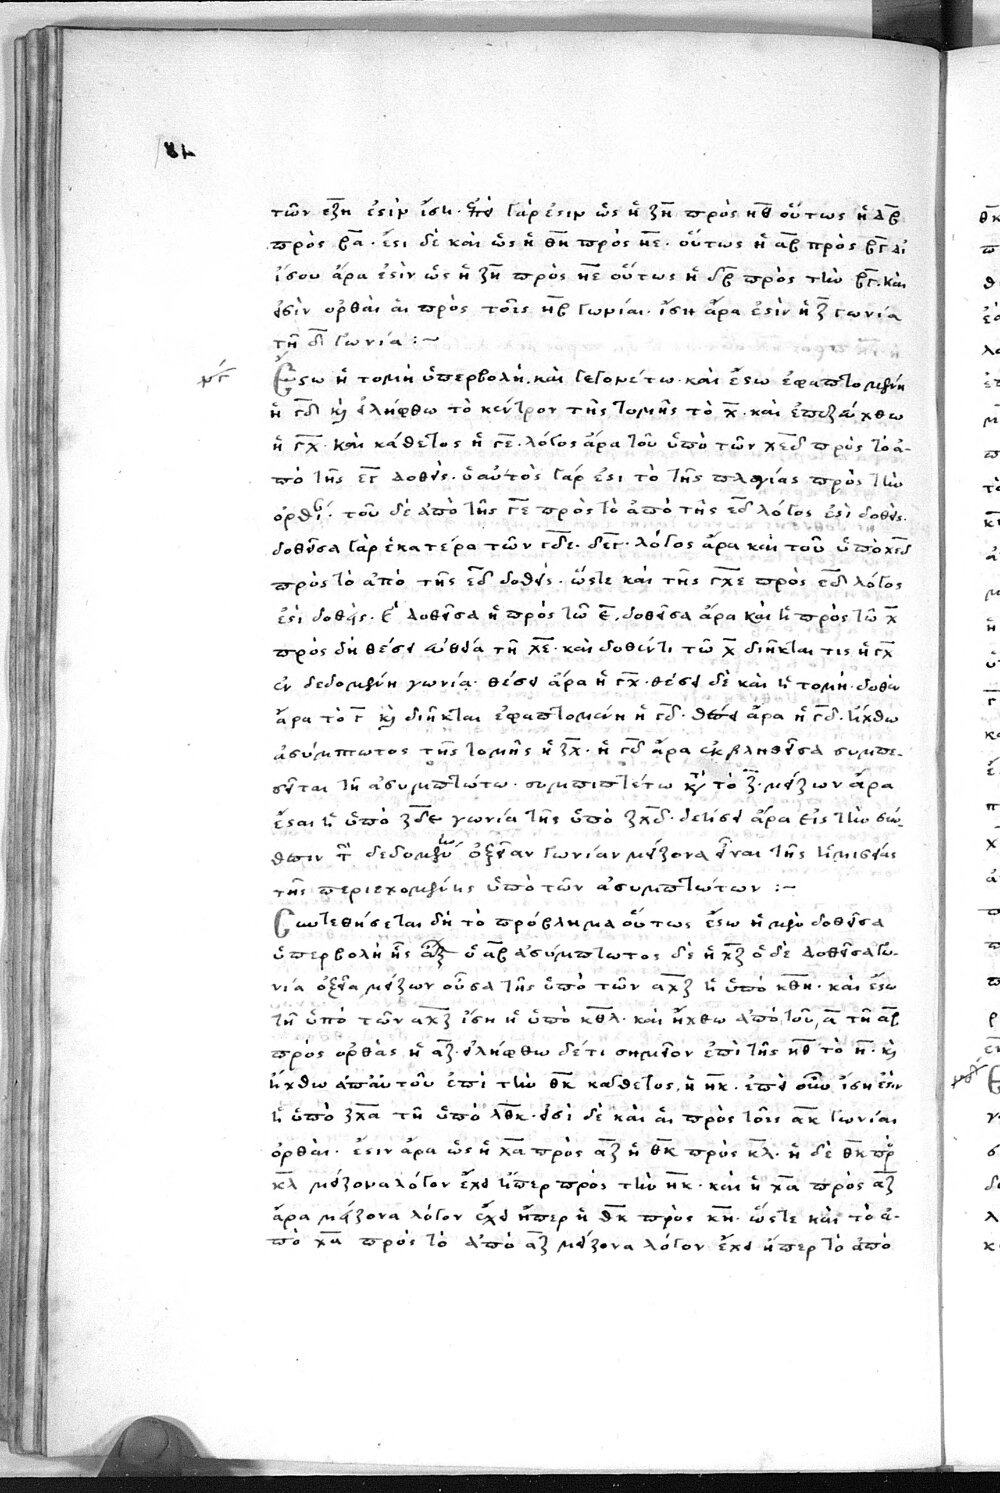 τῶν εζη ἐστὶν ἴση· ἐπεὶ γάρ ἐστιν ὡς ἡ ζη πρὸς ηθ οὕτως ἡ δβ
πρὸς βα· ἔστι δὲ καὶ ὡς ἡ θη πρὸς ηε· οὕτως ἡ αβ πρὸς βγ δι
ἴσου ἄρα ἐστὶν ὡς ἡ ζη πρὸς ηε οὕτως ἡ δβ πρὸς τὴν βγ. καὶ
εἰσὶν ὀρθαὶ αἱ πρὸς τοῖς ηβ γωνίαι· ἴση ἄρα ἐστὶν ἡ ζ γωνία
τῇ δ γωνία :~
Ἔστω ἡ τομὴ ὑπερβολή, καὶ γεγονέτω· καὶ ἔστω ἐφαπτομένη
ἡ γδ κ εἰλήφθω τὸ κέντρον τῆς τομῆς τὸ χ· καὶ ἐπεζεύχθω
ἡ γχ· καὶ κάθετος ἡ γε· λόγος ἄρα τοῦ ὑπὸ τῶν χεδ πρὸς τὸ ἀ-
πὸ τῆς εγ δοθείς· ὁ αὐτὸς γάρ ἐστι τὸ τῆς πλαγίας πρὸς τὴν
ὀρθί· τοῦ δὲ ἀπὸ τῆς γε πρὸς τὸ ἀπὸ τῆς εδ λόγος ἐστὶ δοθείς·
δοθεῖσα γὰρ ἑκατέρα τῶν γδε· δεγ· λόγος ἄρα καὶ τοῦ ὑπὸ χεδ
πρὸς τὸ ἀπὸ τῆς εδ δοθείς· ὥστε καὶ τῆς γχε πρὸς εδ λόγος
ἐστὶ δοθείς· δοθεῖσα ἡ πρὸς τῶ ε, δοθεῖσα ἄρα καὶ ἡ πρὸς τῶ χ
πρὸς δὴ θέσει εὐθεία τῇ χε· καὶ δοθέντι τῶ χ διῆκται τις ἡ γχ
ἐν δεδομένη γωνία· θέσει ἄρα ἡ γχ· θέσει δὲ καὶ ἡ τομή· δοθὲν
ἄρα τὸ γ κ διῆκται ἐφαπτομένη ἡ γδ· θέσει ἄρα ἡ γδ· ἤχθω
ἀσύμπτωτος τῆς τομῆς ἡ ζχ· ἡ γδ ἄρα ἐκβληθεῖσα συμπε-
σεῖται τῇ ἀσυμπτώτω· συμπιπτέτω κατὰ τὸ ζ· μείζων ἄρα
ἔσται ἡ ὑπὸ ζδε γωνία τῆς ὑπὸ ζχδ· δεήσει ἄρα εἰς τὴν σύν-
θεσιν τὴν δεδομένην ὀξεῖαν γωνίαν μείζονα εἶναι τῆς ἡμισείας
τῆς περιεχομένης ὑπὸ τῶν ἀσυμπτώτων :~
Συντεθήσεται δὴ τὸ πρόβλημα οὕτως ἔστω ἡ μὲν δοθεῖσα
ὑπερβολὴ ἧς ἄξων ὁ αβ ἀσύμπτωτος δὲ ἡ χζ ἡ δὲ δοθεῖσα γω-
νία ὀξεῖα μείζων οὖσα τῆς ὑπὸ τῶν αχζ ἡ ὑπὸ κθη· καὶ ἔστω
τῇ ὑπὸ τῶν αχζ ἴση ἡ ὑπὸ κθλ· καὶ ἤχθω ἀπὸ τοῦ α τῇ αβ
πρὸς ὀρθὰς ἡ αζ· εἰλήφθω δέ τι σημεῖον ἐπὶ τῆς ηθ τὸ η· κ
ἤχθω ἀπ' αὐτοῦ ἐπὶ τὴν θκ κάθετος ἡ ηκ· ἐπεὶ οὖν ἴση ἐστὶν
ἡ ὑπὸ ζχα τῇ ὑπὸ λθκ· εἰσὶ δὲ καὶ αἱ πρὸς τοῖς ακ γωνίαι
ὀρθαί· ἔστιν ἄρα ὡς ἡ χα πρὸς αζ ἡ θκ πρὸς κλ· ἡ δὲ θκ πρὸς
κλ μείζονα λόγον ἔχει ἤπερ πρὸς τὴν ηκ· καὶ ἡ χα πρὸς αζ
ἄρα μείζονα λόγον ἔχει ἤπερ ἡ θκ πρὸς κη· ὥστε καὶ τὸ ἀ-
πὸ χα πρὸς τὸ ἀπὸ αζ μείζονα λόγον ἔχει ἤπερ τὸ ἀπὸ